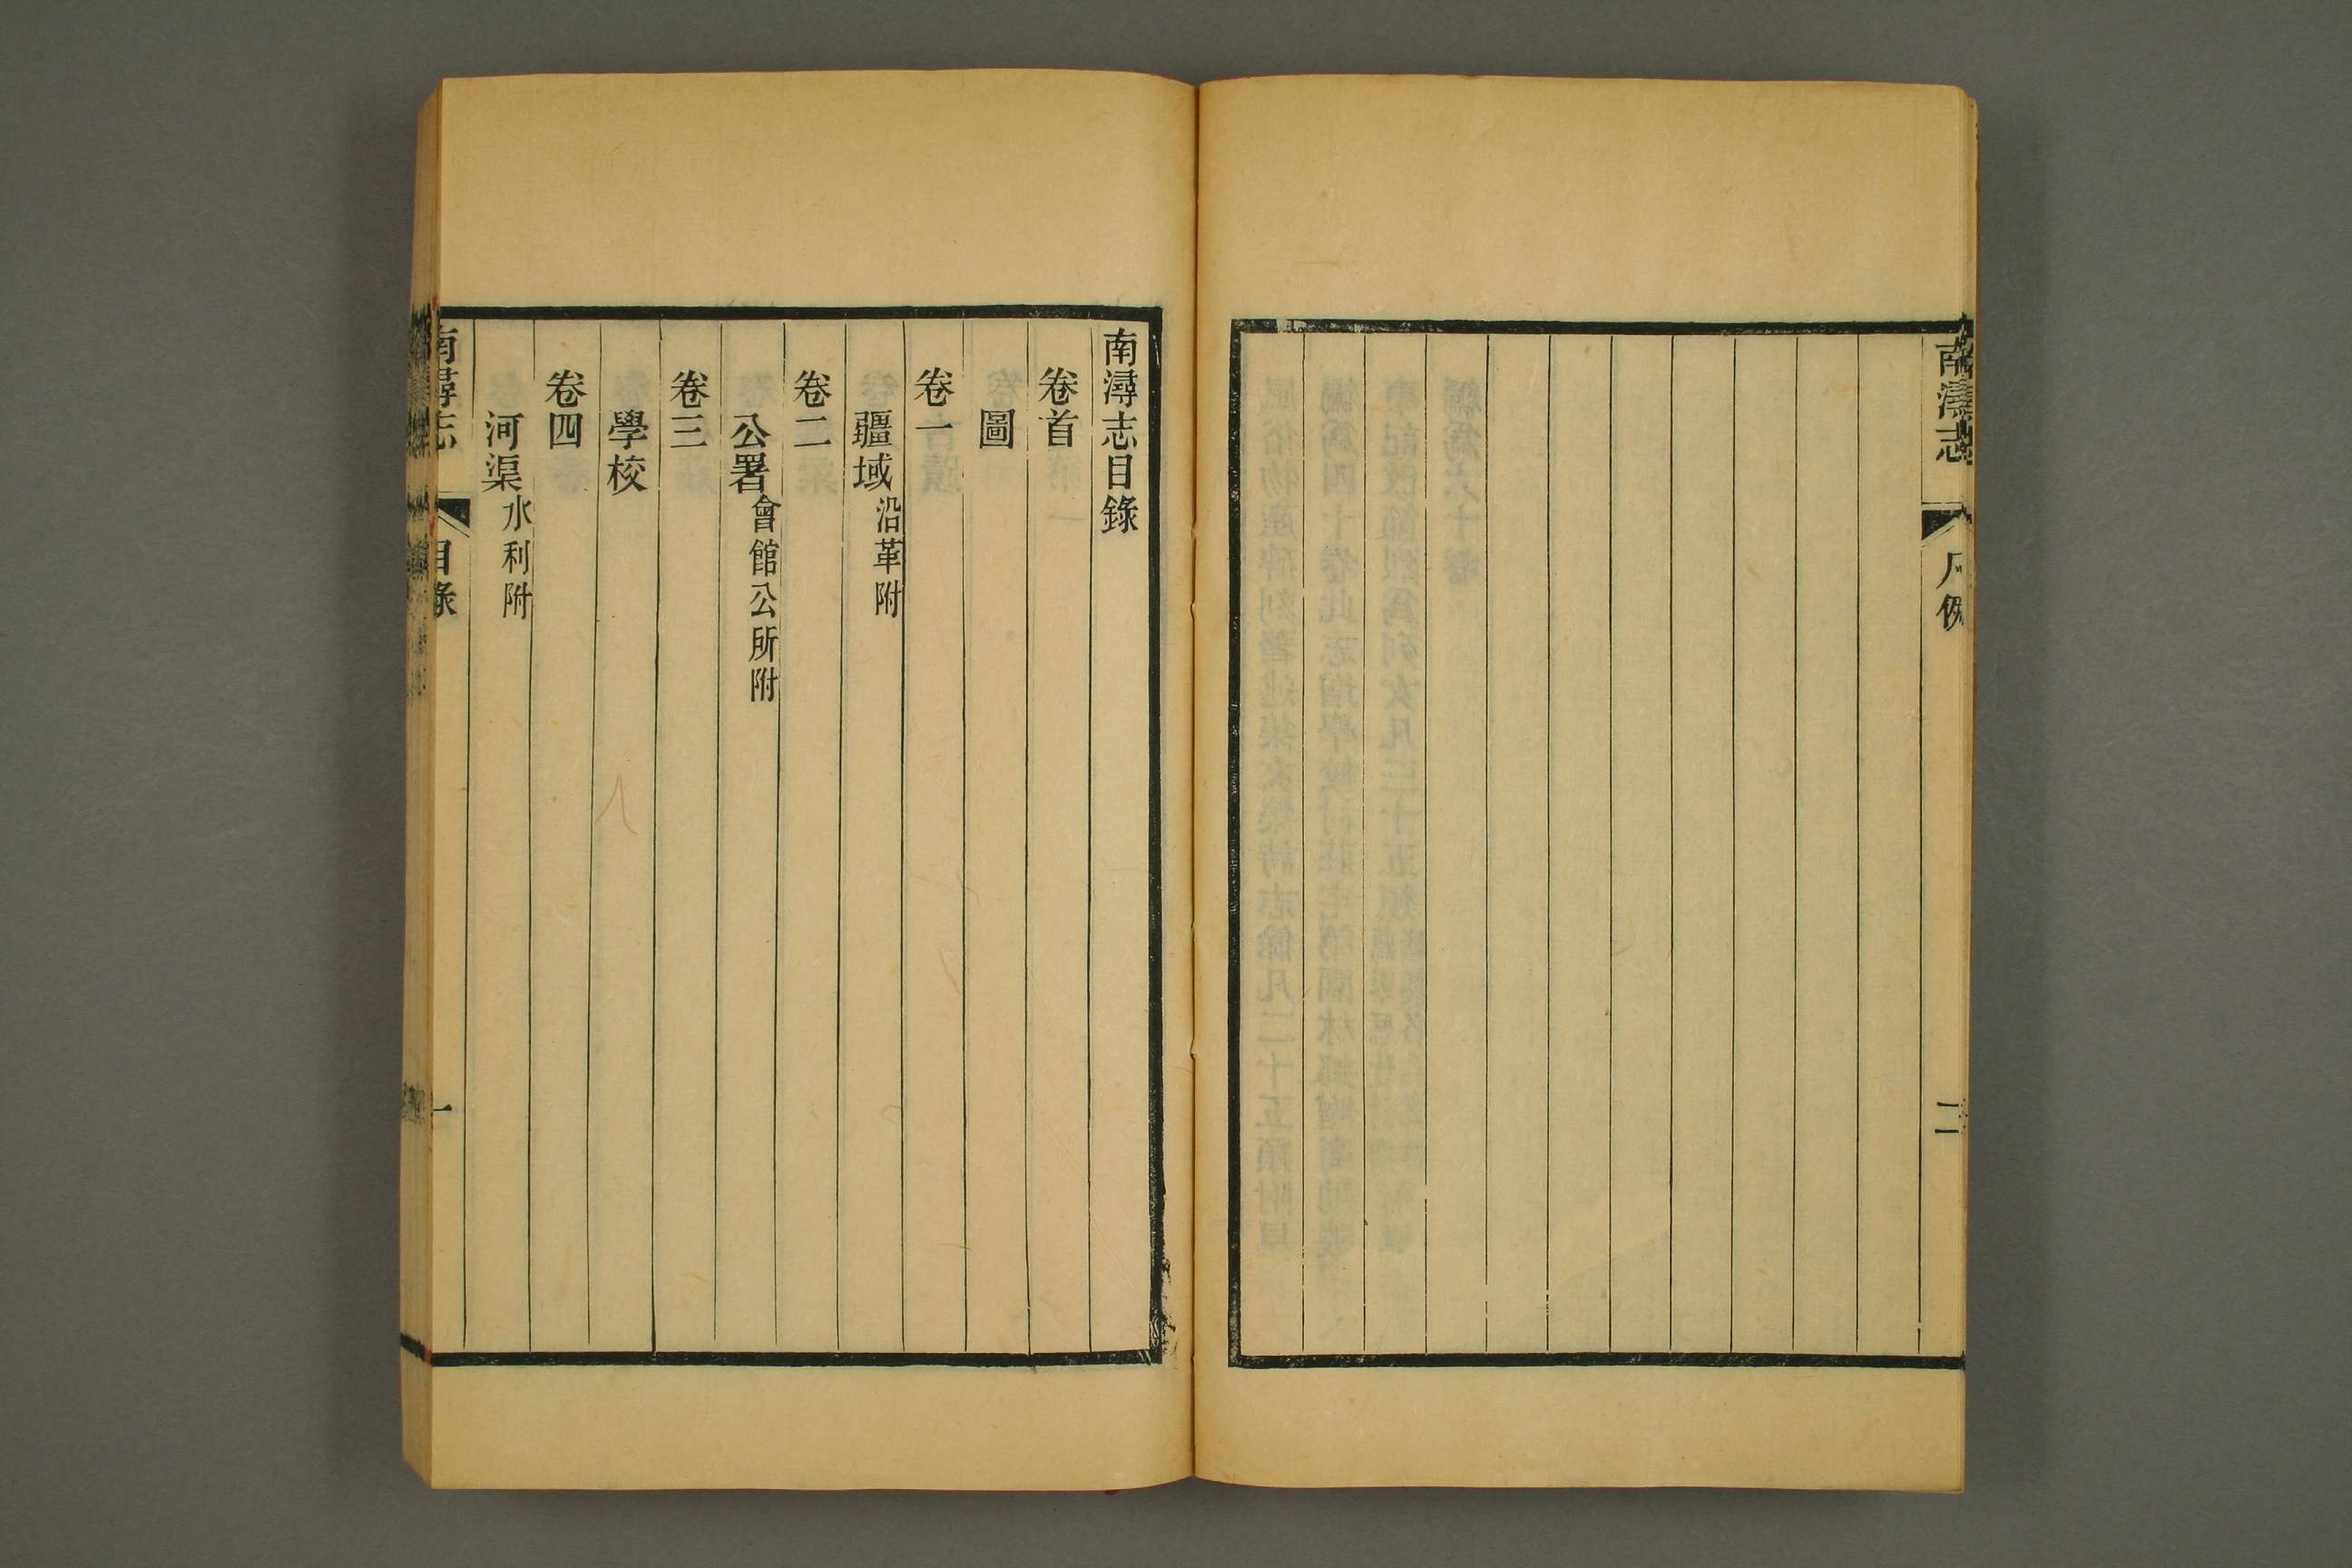 南潯志
凡例
二
南潯志目錄
卷首
圖
卷一
疆域沿革附
卷二
公署會館公所附
卷三
學校
卷四
河渠水利附
南潯志
目錄
一